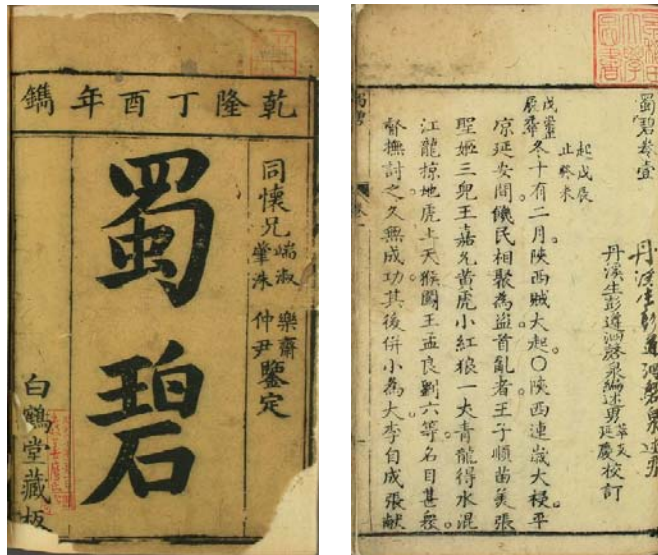 乾隆丁酉年鐫
同懷兄
端淑 樂齋
肇洙 仲尹
鑒定
蜀碧
白鶴堂藏板
蜀碧卷壹
丹溪生彭遵泗磬泉編述男
延慶
校訂
起戊辰
止癸未
戊辰
冬十有二月陝西賊大起〇陝西連歲大祲平
凉延安間饑民相聚為盜首亂者王子順苗美張
聖姬三兒王嘉允黃虎小紅狼一丈青龍得水混
江龍掠地虎上天猴闖王孟良劉六等名目甚衆
督撫討之久無成功其後併小為大李自成張獻